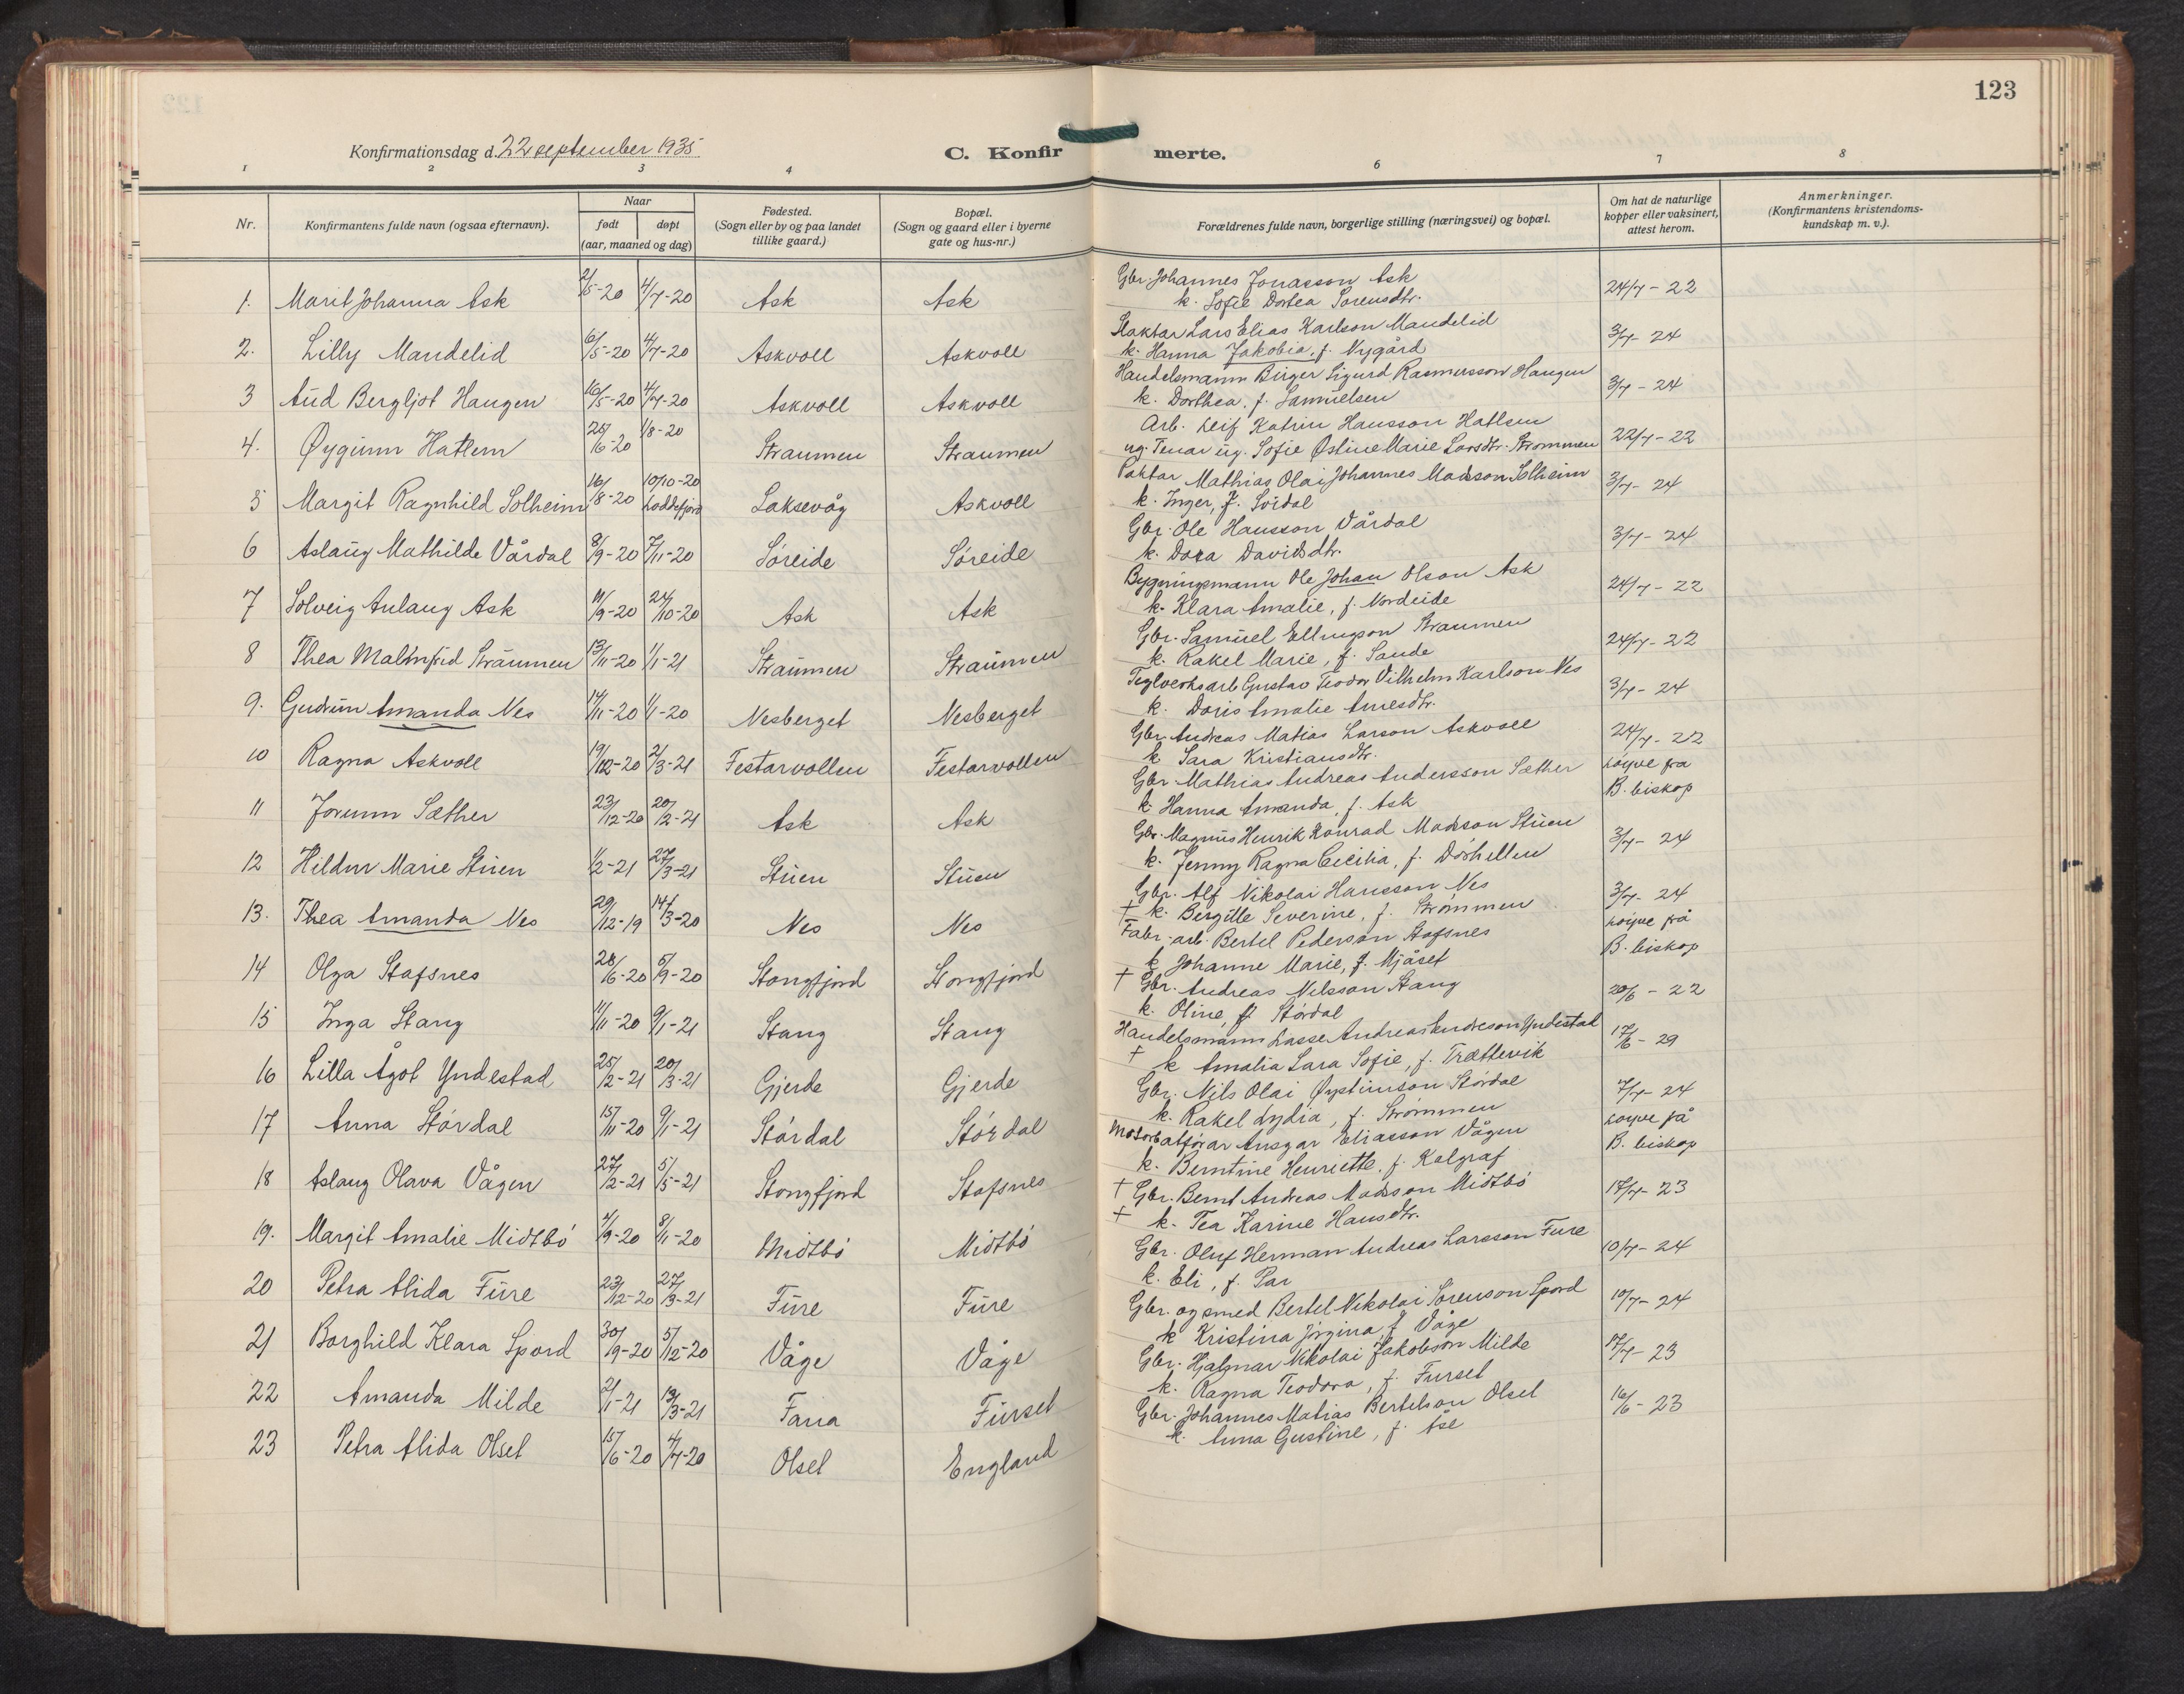 123
Konfirmationsdag d. 22 september 1935
C. Konfirmerte.
1 2 3 4 5 6 7 8
Nr. | Konfirmantens fulde navn (ogsaa efternavn). | Naar født | døpt (aar, maaned og dag) | Fødested. (Sogn eller by og paa landet tillike gaard.) | Bopæl. (Sogn og gaard eller i byerne gate og hus-nr.) | Forældrenes fulde navn, borgerlige stilling (næringsvei) og bopæl. | Om hat de naturlige kopper eller vaksinert, attest herom. | Anmerkninger. (Konfirmantens kristendoms-kundskap m. v.).
1. Marit Johanna Ask 2/5-20 4/7-20 Ask Ask Gbr. Johannes Jonasson Ask 24/7-22
k. Sofie Dortea Sorensdtr.
2. Lilly Mandelid 6/5-20 4/7-20 Askvoll Askvoll Slaktar Lars Elias Karlson Mandelid 3/7-24
k. Hanna Jakobia, f. Nygård
3 Aud Bergljot Haugen 16/5-20 4/7-20 Askvoll Askvoll Handelsmann Birger Sigurd Rasmusson Haugen 3/7-24
k. Dorthea, f. Samuelsen
4. Øygunn Hatlem 25/6-20 1/8-20 Straumen Straumen Arb. Leif Katrin Hansson Hatlem 22/7-22
ug. Tenar ug. Sofie Østine Marie Larsdtr. Strømmen
5 Margit Ragnhild Solheim 16/8-20 10/10-20 Loddefjord Laksevåg Askvoll Paktar Mathias Olai Johannes Madsson Solheim 3/7-24
k. Inger, f. Svidal
6 Aslaug Mathilde Vårdal 8/9-20 7/11-20 Søreide Søreide Gbr. Ole Hansson Vårdal 3/7-24
k. Dora Davidsdtr.
7 Solveig Aulaug Ask 11/9-20 24/10-20 Ask Ask Bygningsmann Ole Johan Olson Ask 24/7-22
k. Klara Amalie, f. Nordeide
8 Thea Malmfrid Straumen 13/11-20 1/1-21 Straumen Straumen Gbr. Samuel Ellingson Straumen 24/7-22
k. Rakel Marie, f. Sande
9. Gudrun Amanda Nes 14/11-20 1/1-20 Nesberget Nesberget Teglverksarb Gustav Teodor Vilhelm Karlson Nes 3/7-24
k. Doris Amalie Arnesdtr.
10 Ragna Askvoll 19/12-20 2/3-21 Festarvollen Festarvollen Gbr. Andreas Matias Larson Askvoll 24/7-22
k Sara Kristiansdtr. løyve fra
11 Jorunn Sæther 23/12-20 20/2-21 Ask Ask Gbr. Mathias Andreas Andersson Sæther B. biskop
k. Hanna Amanda, f. Ask
12 Hildur Marie Stuen 1/2-21 27/3-21 Stuen Stuen Gbr. Magnus Henrik Konrad Madsson Stuen 3/7-24
k. Jenny Ragna Cecilia, f. Dorhellen
13. Thea Amanda Nes 29/12-19 14/3-20 Nes Nes Gbr. Alf Nikolai Hansson Nes 3/7-24
+ k. Bergitte Severine, f. Strømmen løyve frå
14 Olga Stafsnes 28/6-20 5/9-20 Stongfjord Stongfjord Fabr.-arb. Bertel Pederson Stafsnes B. biskop
k Johanne Marie, f. Mjåset
15 Inga Stang 11/11-20 9/1-21 Stang Stang + Gbr. Andreas Nilsson Stang 20/6-22
k. Oline, f. Størdal
16 Lilla Ågot Yndestad 25/2-21 20/3-21 Gjerde Gjerde Handelsmann Lasse Andreas Andreson Yndestad 17/6-29
+ k Amalia Lara Sofie, f. Trættevik
17 Anna Størdal 15/11-20 9/1-21 Størdal Størdal Gbr. Nils Olai Øystinson Størdal 7/7-24
k. Rakel Lydia, f. Strømmen løyve på
18 Aslaug Olava Vågen 27/2-21 5/5-21 Stongfjord Stafsnes Motorbatførar Ansgar Eliasson Vågen B. biskop
k. Berntine Henriette, f. Kalgraf
19. Margit Amalie Midtbø 4/9-20 8/11-20 Midtbø Midtbø + Gbr. Bernt Andreas Madsson Midtbø 17/7-23
+ k. Tea Karine Hansdtr.
20 Petra Alida Fure 23/12-20 27/3-21 Fure Fure Gbr. Oluf Herman Andreas Larsson Fure 10/7-24
k. Eli, f. Par
21 Borghild Klara Spord 30/9-20 5/12-20 Våge Våge Gbr. og smed Bertel Nikolai Sorenson Spord 10/7-24
k Kristina Jørgina f. Våge
22 Amanda Milde 2/1-21 13/3-21 Fana Furset Gbr. Hjalmar Nikolai Jakobson Milde 17/7-23
k. Ragna Teodora, f. Furset
23 Petra Alida Olset 15/6-20 4/7-20 Olset England Gbr. Johannes Matias Bertelson Olset 16/6-23
k. Anna Gustine, f. Åse